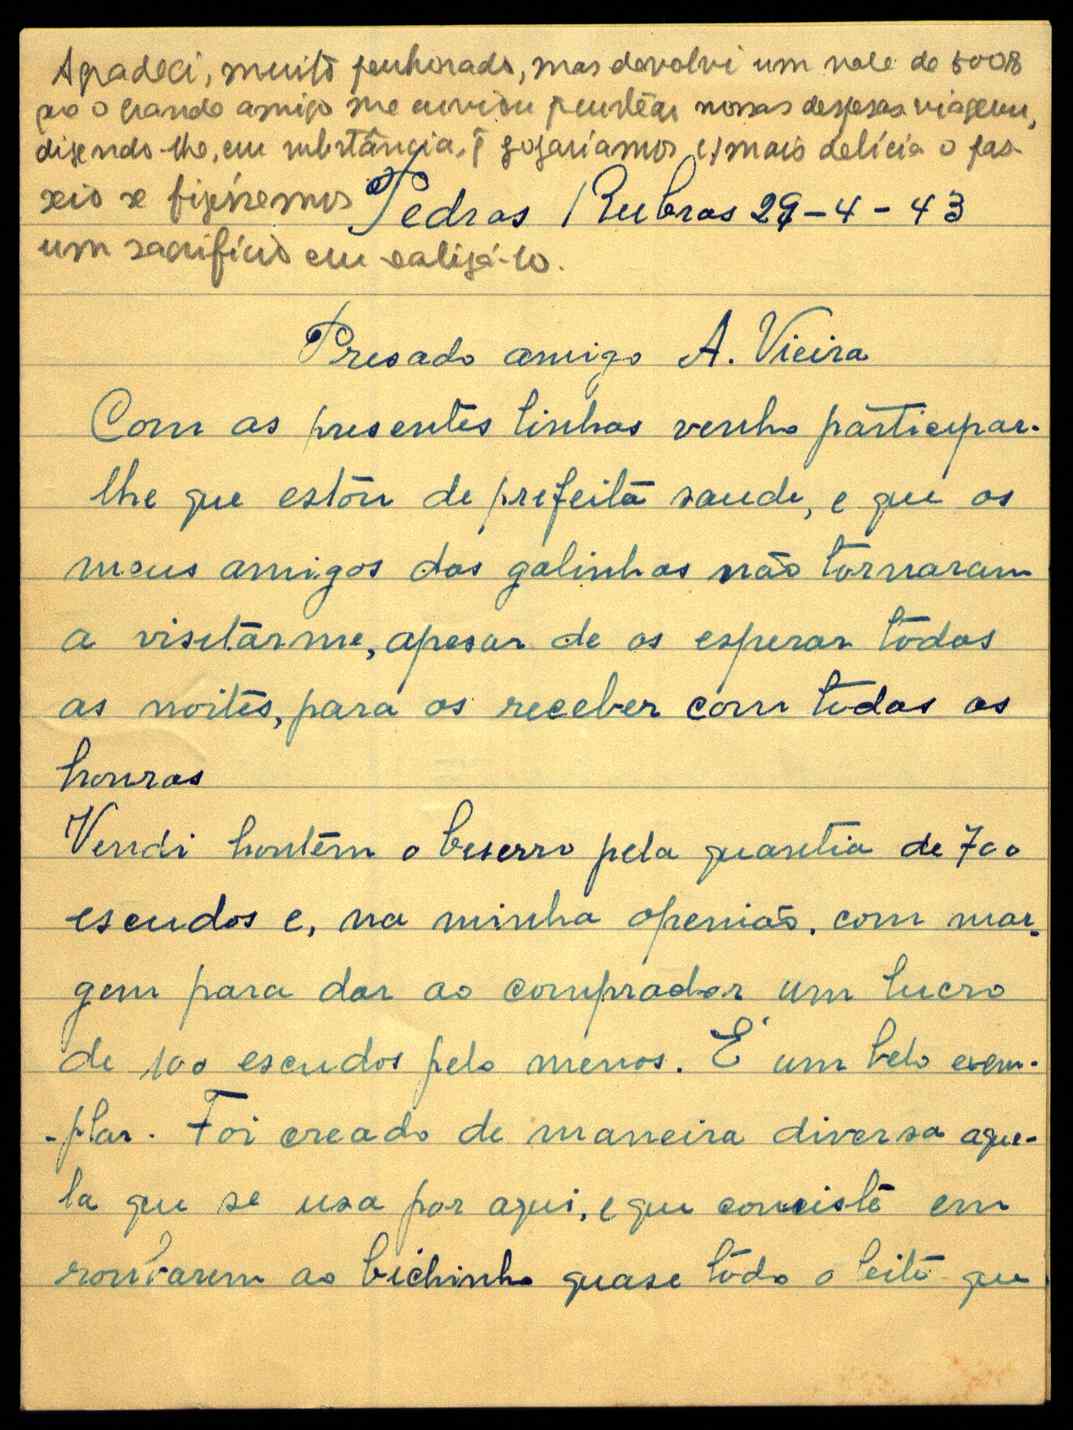 Agradeci, muito penhorado, mas devolvi um vale de 500$
o grande amigo me enviou nossas despesas viagem,
dizendo-lhe, em substância, q̃ gozariamos c/ mais delícia o pas-
seio se fizéssemos
um sacrifício em realizá-lo.
Pedras Rubras 29-4-43
Presado amigo A. Vieira
Com as presentes linhas venho participar-
lhe que estou de prefeita saude, e que os
meus amigos das galinhas não tornaram
a visitarme, apesar de os esperar todas
as noites, para os receber com todas as
honras
Vendi hontem o beserro pela quantia de 700
escudos e, na minha openião, com mar-
gem para dar ao comprador um lucro
de 100 escudos pelo menos. É um belo exem-
-plar. Foi creado de maneira diversa aque-
la que se usa por aqui, e que consiste em
roubarem ao bichinho quase todo o leite que